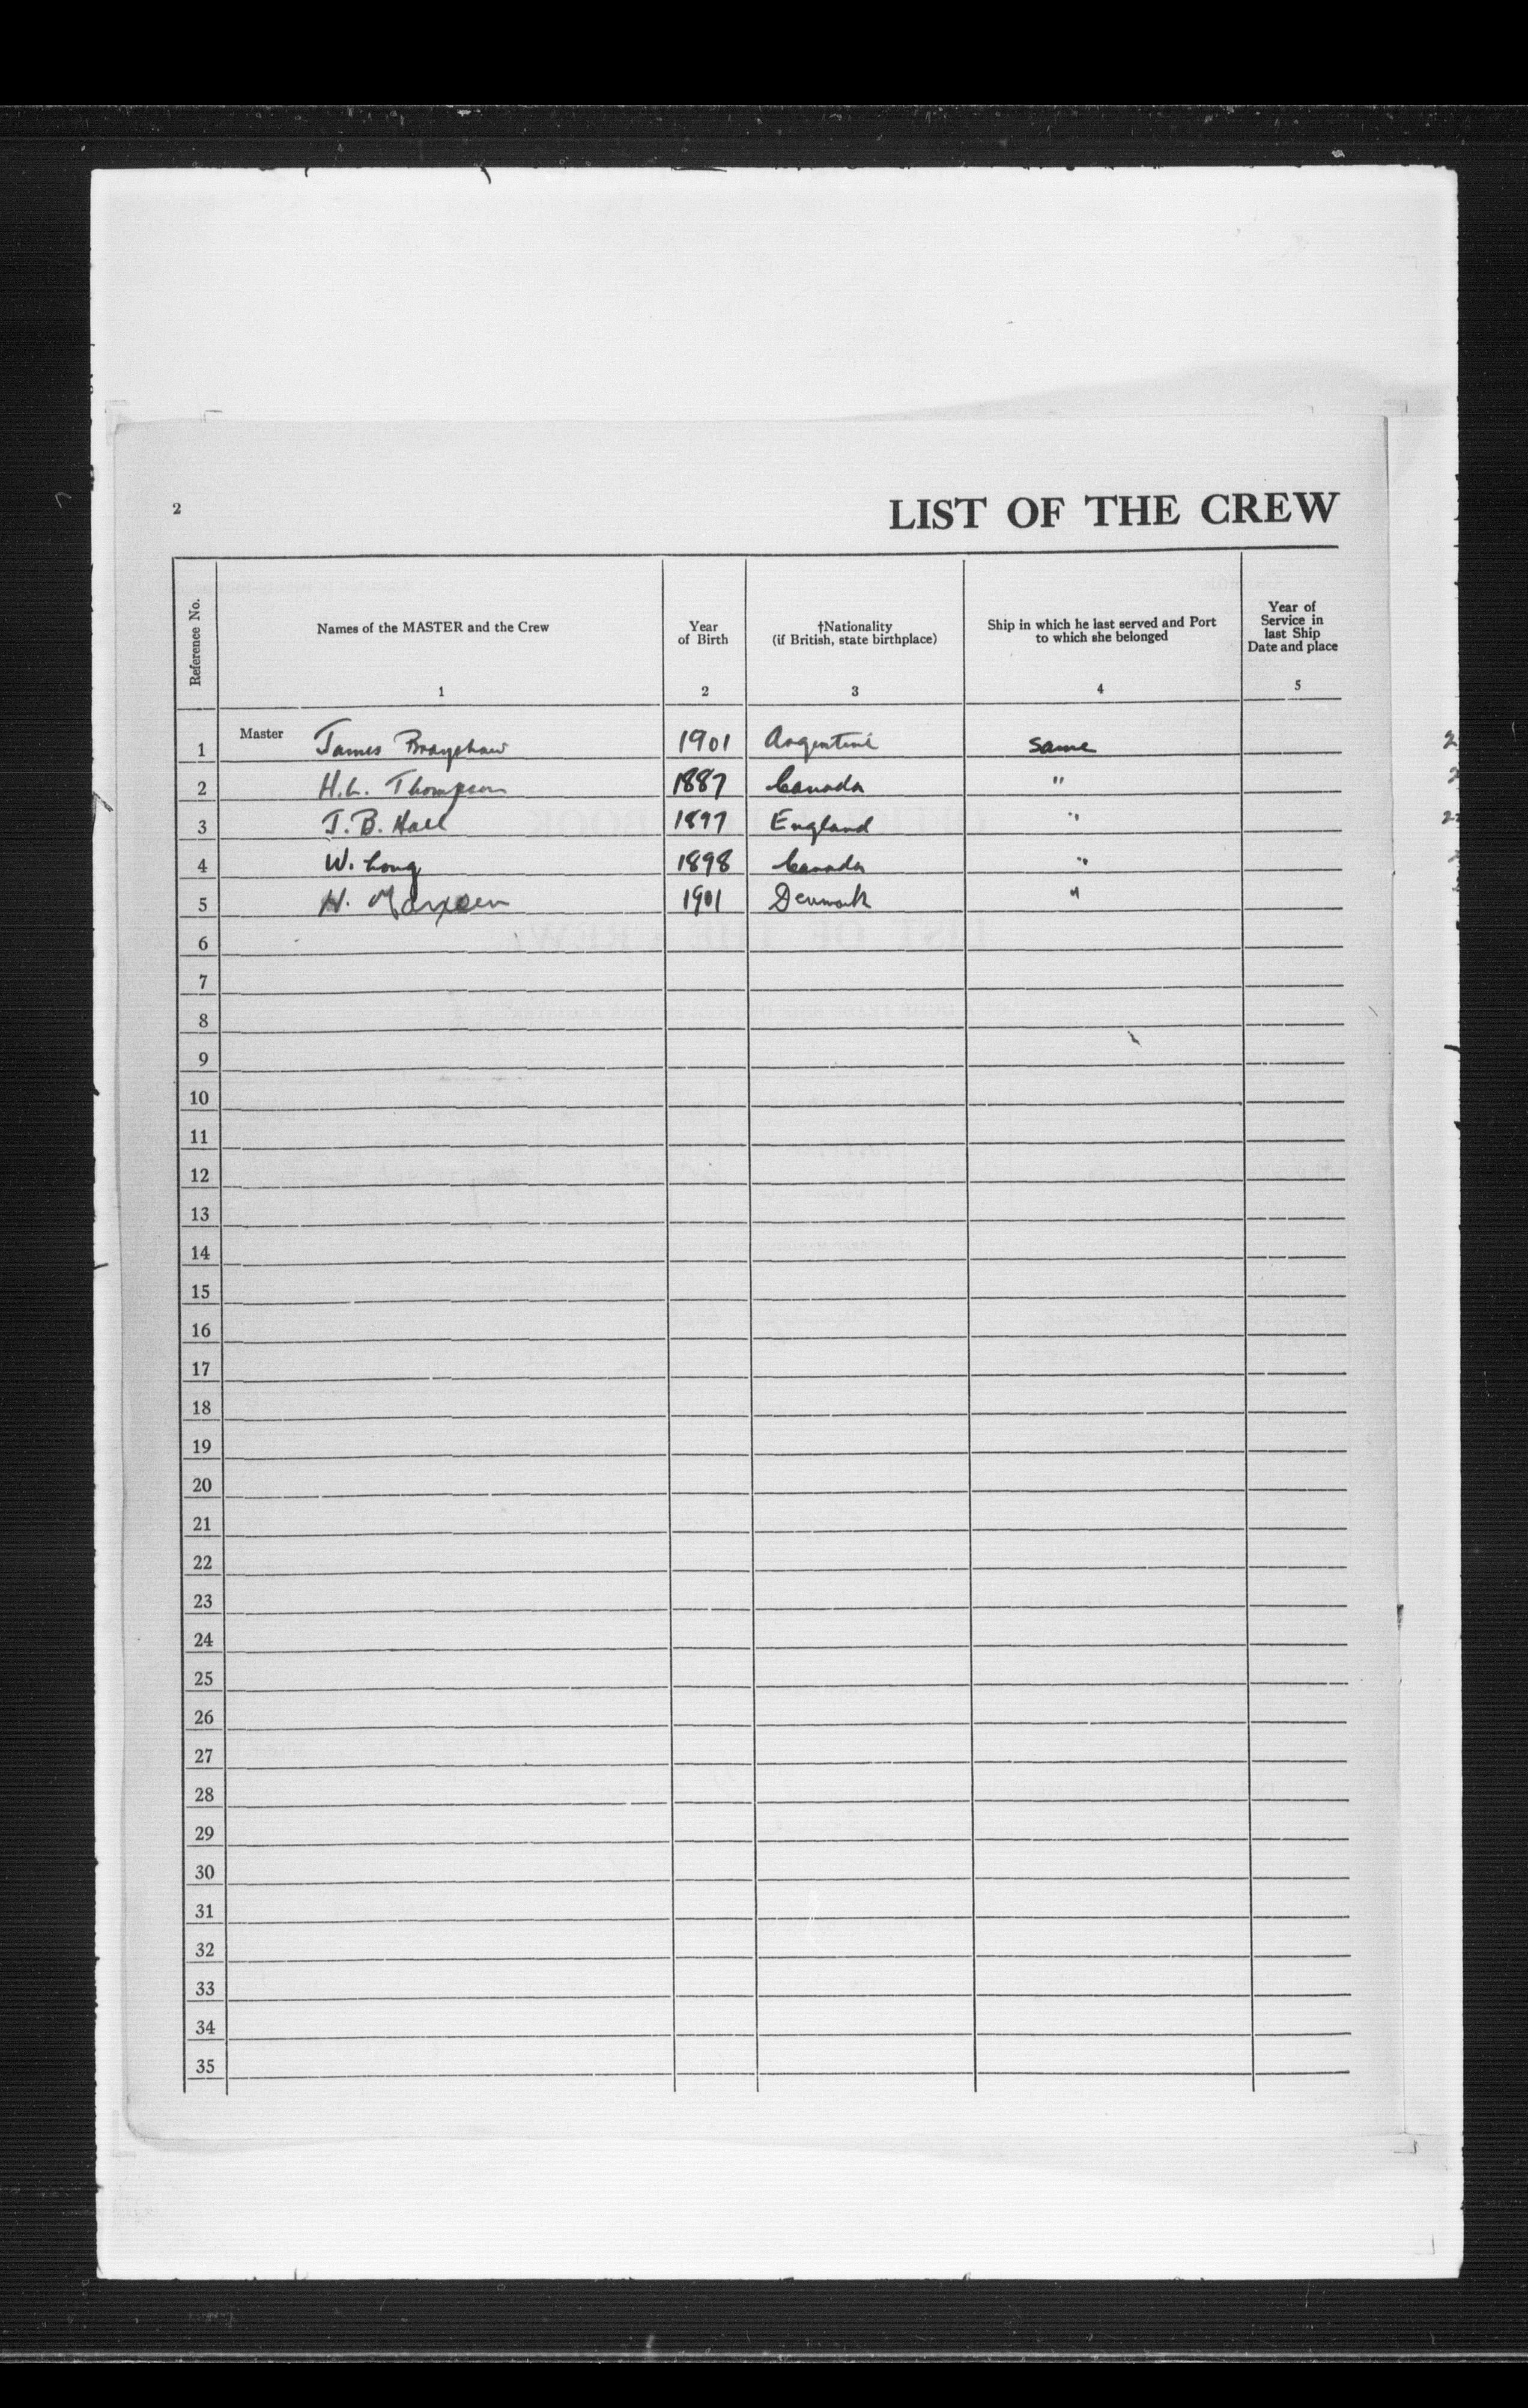 2
LIST OF THE CREW
Reference No.
Names of the MASTER and the Crew
Year
of Birth
†Nationality
(if British, state birthplace)
Ship in which he last served and Port
to which she belonged
Year of
Service in
last Ship
Date and place
1 2 3 4 5
1 Master James Brayshaw 1901 Argentine same
2 H.L. Thompson 1887 Canada "
3 J.B. Hall 1897 England "
4 W. Long 1898 Canada "
5 H. Marxsen 1901 Denmark "
6
7
8
9
10
11
12
13
14
15
16
17
18
19
20
21
22
23
24
25
26
27
28
29
30
31
32
33
34
35